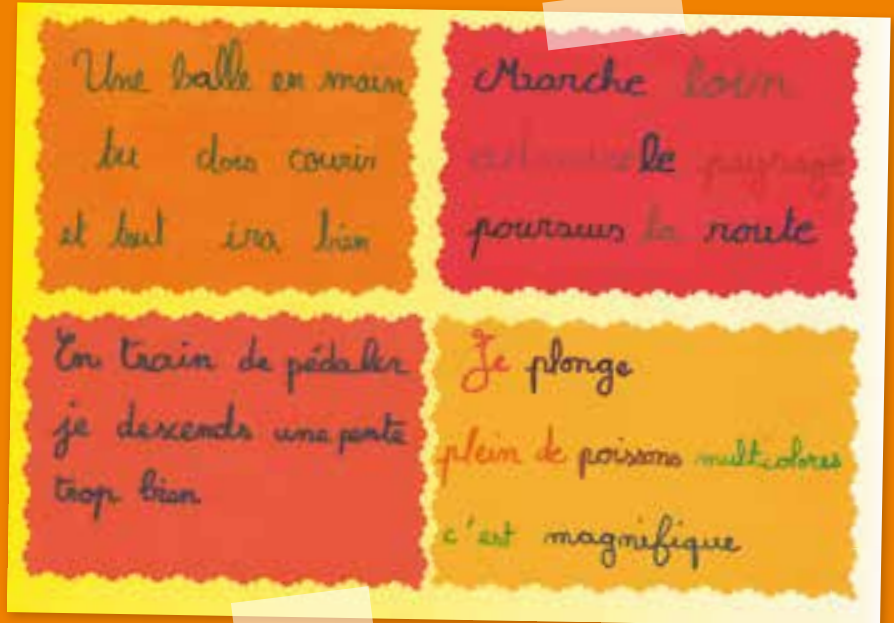 Une balle en main
tu dois courir
et tout ira bien
Marche loin
le paysage
poursuis la route
En train de pédaler
je descends une pente
trop bien
Je plonge
plein de poissons multicolores
c'est magnifique